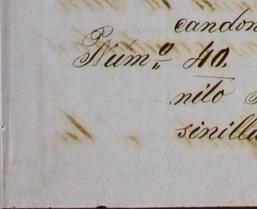 candon
Núm.º 40.
nito
sinilla